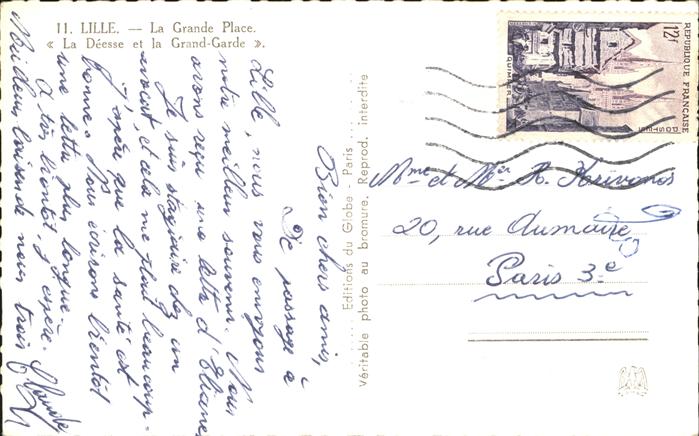 11. LILLE. — La Grande Place.
« La Déesse et la Grand-Garde ».
Bien chers amis,
De passage à
Lille, nous vous envoyons
notre meilleur souvenir. Nous
avons reçu une lettre d'Eliane
Je suis stagiaire chez un
avoué, et cela me plaît beaucoup.
J'espère que la santé est
bonne. Nous écrirons bientôt
une lettre plus longue.
A très bientôt j'espère.
Meilleurs baisers de nous trois
Claude
Editions du Globe - Paris
Véritable photo au bromure. Reprod. interdite
REPUBLIQUE FRANÇAISE
12f
POSTES
QUIMPER
Mme et Mer A. Krivonos
20, rue Aumaire
Paris 3e